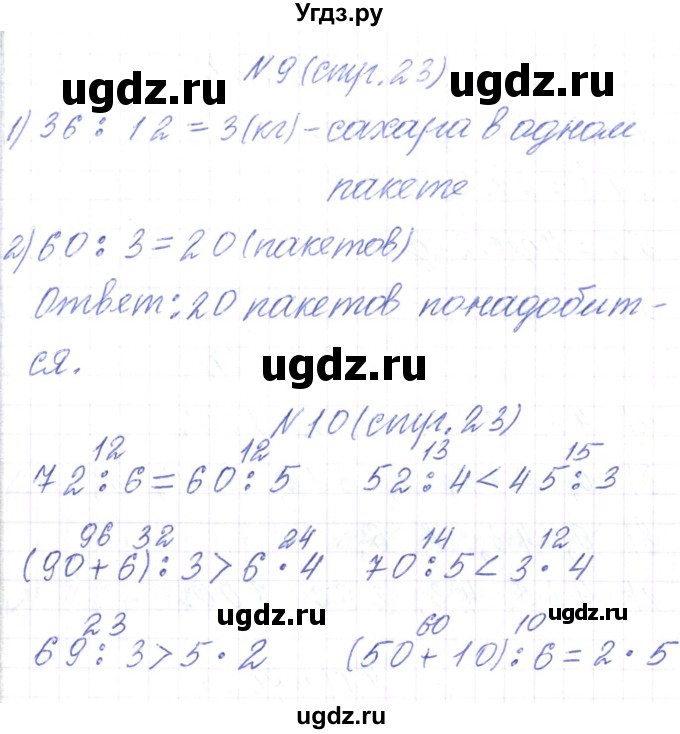 Угдз.ру
№9 (стр. 23)
ugdz.ru ugdz.ru
1) 36 : 12 = 3 (кг) - сахара в одном
пакете
2) 60 : 3 = 20 (пакетов)
Ответ: 20 пакетов понадобит-
ся.
ugdz.ru
№10 (стр. 23)
12 12 13 15
72 : 6 = 60 : 5 52 : 4 < 45 : 3
96 32 24 14 12
(90 + 6) : 3 > 6 · 4 70 : 5 < 3 · 4
ugdz.ru ugdz.ru
23 60 10
69 : 3 > 5 · 2 (50 + 10) : 6 = 2 · 5
ugdz.ru